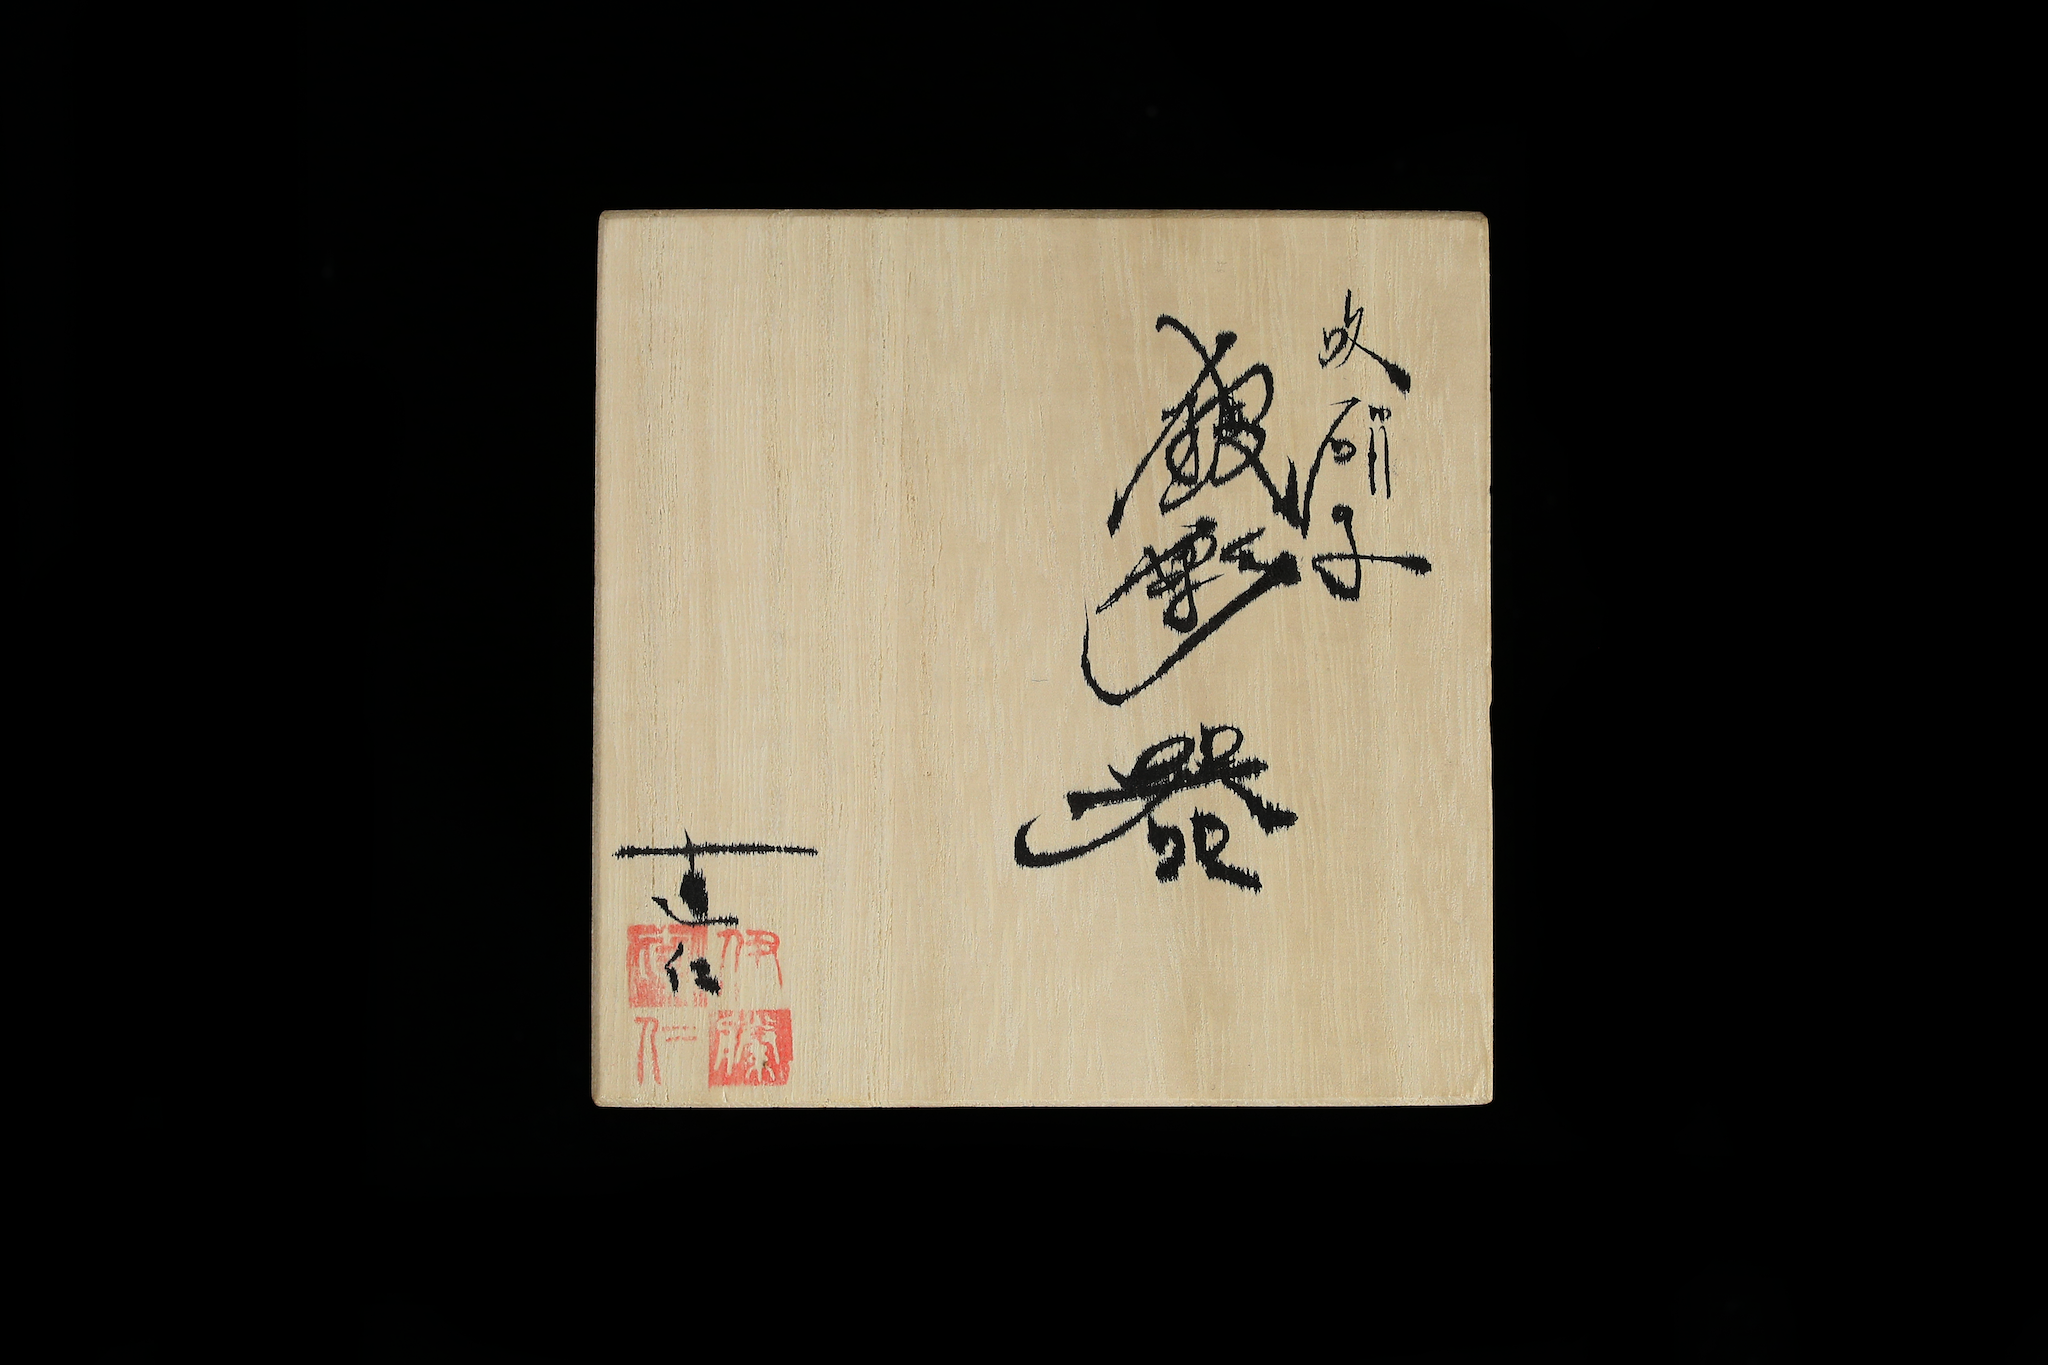 吹硝子
銀彩
器
直仁
伊藤
直仁